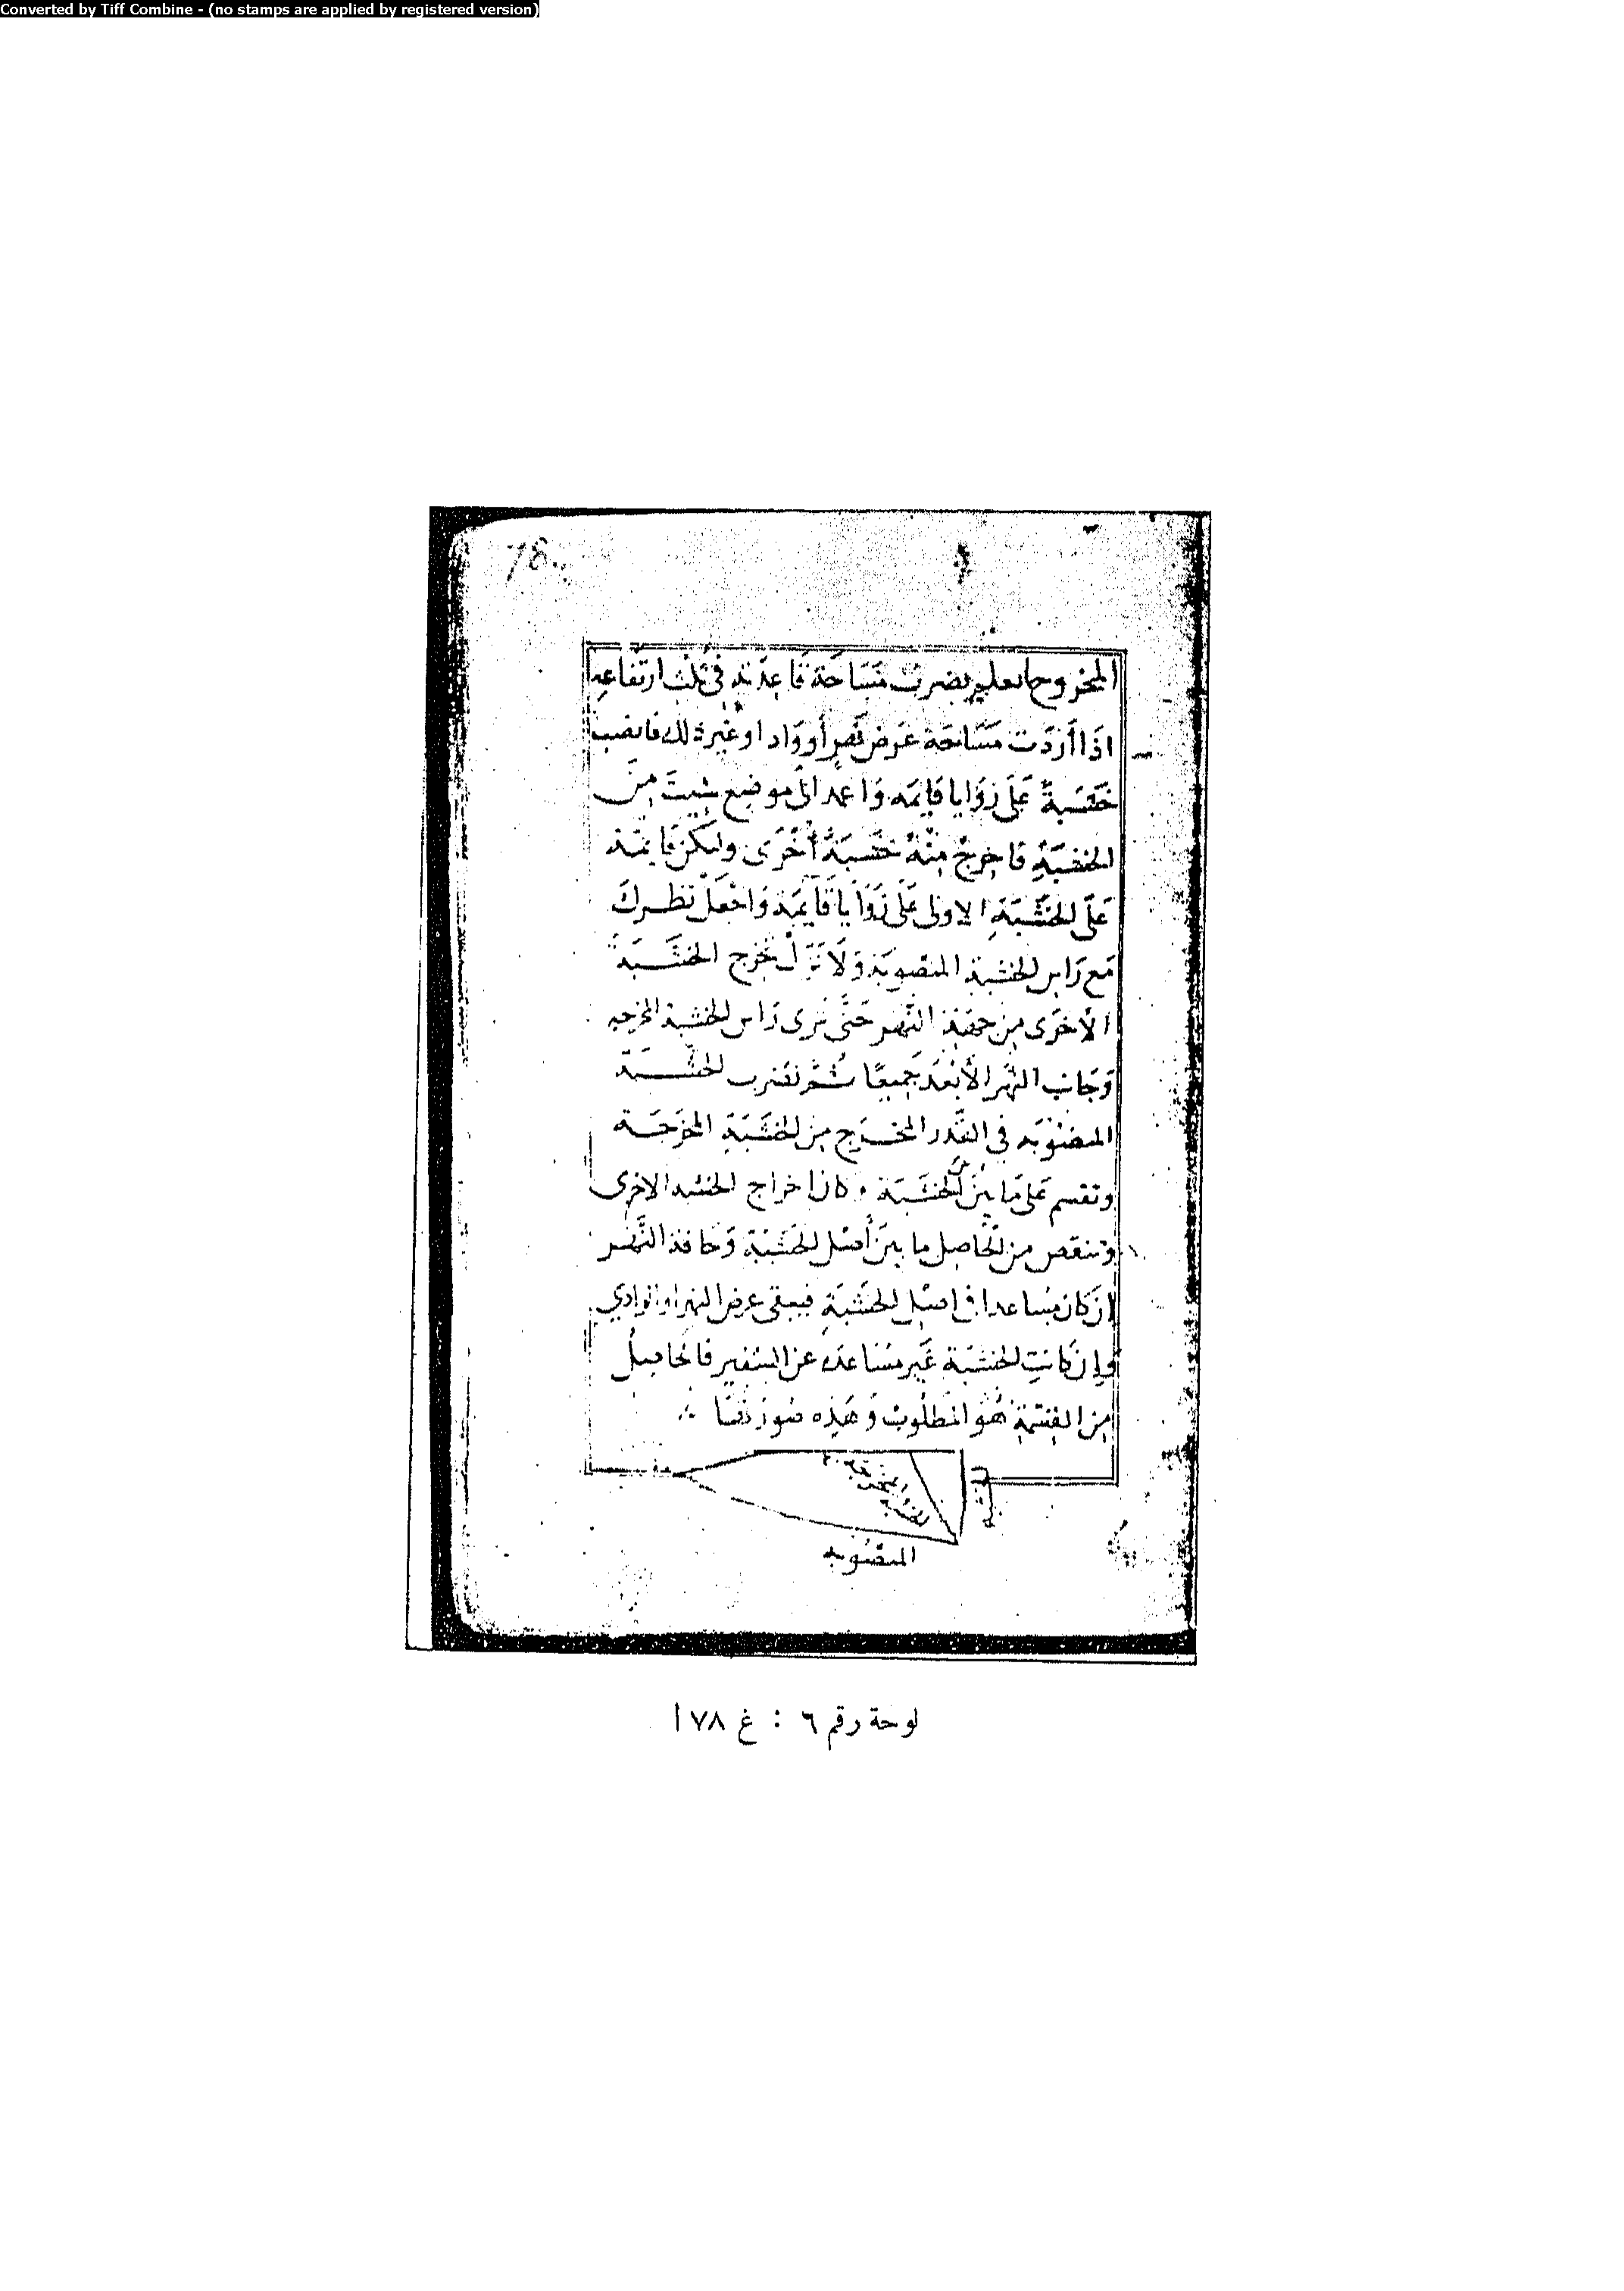 Converted by Tiff Combine - (no stamps are applied by registered version)
78
المخروط يضرب مَسَاحَة قَاعِدَته في ثلث ارتفاعه
اذَا أرَدَت مَسَاحَة عَرض نَهرٍ أو وَاد او غير ذلك فانصب
خَشَبةً عَلَى زوَايا قايمه وَاعمد الى موضع شيتَ مِنَ
الخشبَةِ فاخرِجْ مِنْهُ خشَبَةً أخْرَى ولتكن قايمَة
عَلَى الخشَبَةِ الاولى عَلى زَوَايا قَايمَة وَاجْعَلْ نظرك
مَع رَاس الخشبة المنصوبَة وَلَا تَزَل تخرج الخشَبَة
الأخرَى من جهة النَّهر حَتَّى ترى رَاس الخشبة المخرجه
وَجَانب النهَر الأبْعَد جَميعًا ثُمَّ تضرب الخشبَة
المنصُوبَه في القَدر المخرج مِن الخشَبَةِ المخرَجَة
وتقسم عَلى مَا بين الخشَبَة وكان اخراج الخشبه الاخرى
وتنقص من الحَاصِل ما بين أصْل الخشَبَة وَحافة النَّهر
ان كان في اصْل الخشَبَةِ فيبقى عرض النهر او الوادي
وإن كانتِ الخشَبَة غَير عن فالحاصِلُ
مِن القِسْمَةِ هُوَ المطلُوبُ وَهَذِه صُورَتها
المنصُوبه
لوحة رقم ٦ : غ ٧٨ ا